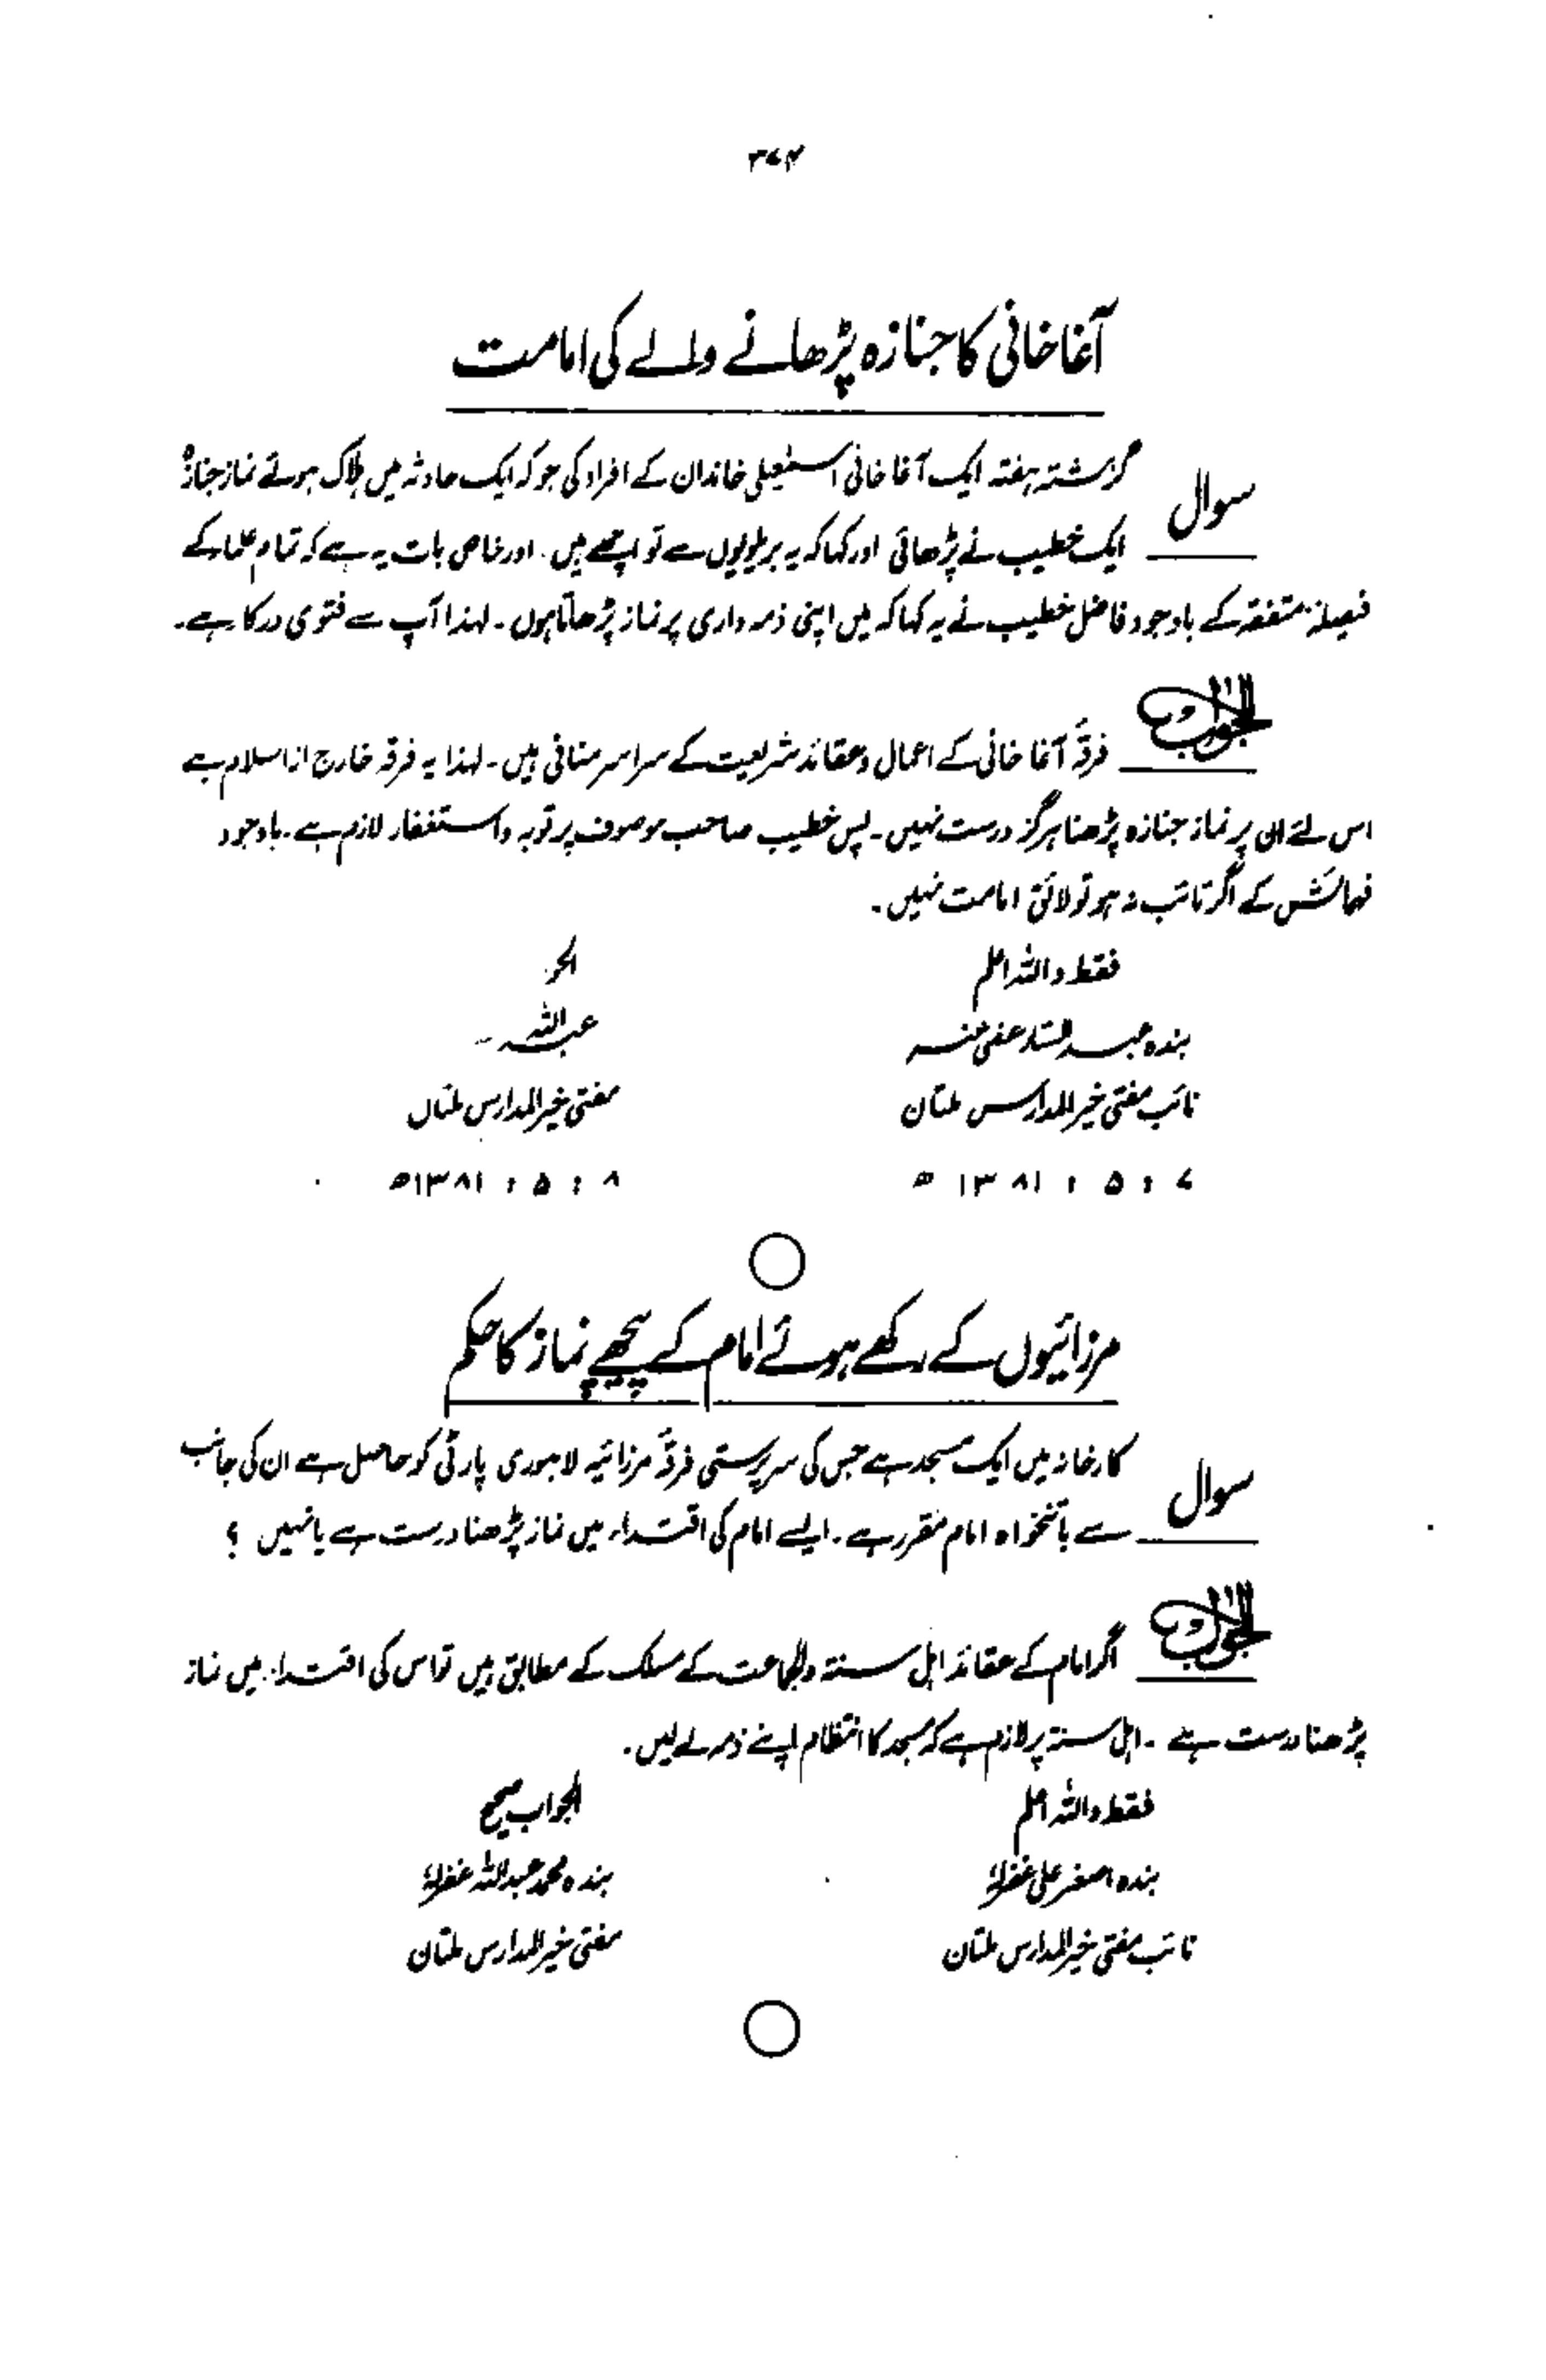 ۳۷۲
آغاخانی کا جنازہ پڑھانے والے کی امامت
سوال گزشتہ ہفتہ ایک آغا خانی اسمٰعیلی خاندان کے افراد کی جو کہ ایک حادثہ میں ہلاک ہوئے نماز جنازہ
ایک خطیب نے پڑھائی اور کہا کہ یہ بریلویوں سے تو اچھے ہیں۔ اور خاص بات یہ ہے کہ تمام علماء کے
فیصلۂ متفقہ کے باوجود فاضل خطیب نے یہ کہا کہ میں اپنی ذمہ داری پر نماز پڑھاتا ہوں۔ لہٰذا آپ سے فتویٰ درکار ہے۔
الجواب فرقہ آغا خانی کے اعمال و عقائد شریعت کے سراسر منافی ہیں۔ لہٰذا یہ فرقہ خارج از اسلام ہے
اس لئے ان پر نماز جنازہ پڑھنا ہرگز درست نہیں۔ پس خطیب صاحب موصوف پر توبہ و استغفار لازم ہے۔ باوجود
فہمائش کے اگر تائب نہ ہو تو لائق امامت نہیں۔
فقط واللہ اعلم
بندہ عبدالستار عفی عنہ
نائب مفتی خیر المدارس ملتان
۷ : ۵ : ۱۳۸۱ ھ
عبداللہ
مفتی خیر المدارس ملتان
۸ : ۵ : ۱۳۸۱ھ
مرزائیوں کے رکھے ہوئے امام کے پیچھے نماز کا حکم
سوال کارخانہ میں ایک مسجد ہے جس کی سرپرستی فرقہ مرزائیہ لاہوری پارٹی کو حاصل ہے ان کی جانب
سے باتنخواہ امام مقرر ہے۔ ایسے امام کی اقتداء میں نماز پڑھنا درست ہے یا نہیں ؟
الجواب اگر امام کے عقائد اہل سنۃ والجماعت کے مسلک کے مطابق ہیں تو اس کی اقتداء میں نماز
پڑھنا درست ہے ۔ اہل سنۃ پر لازم ہے کہ مسجد کا انتظام اپنے ذمہ لے لیں۔
فقط واللہ اعلم
بندہ اصغر علی غفرلہٗ
نائب مفتی خیر المدارس ملتان
الجواب صحیح
بندہ محمد عبداللہ غفرلہٗ
مفتی خیر المدارس ملتان